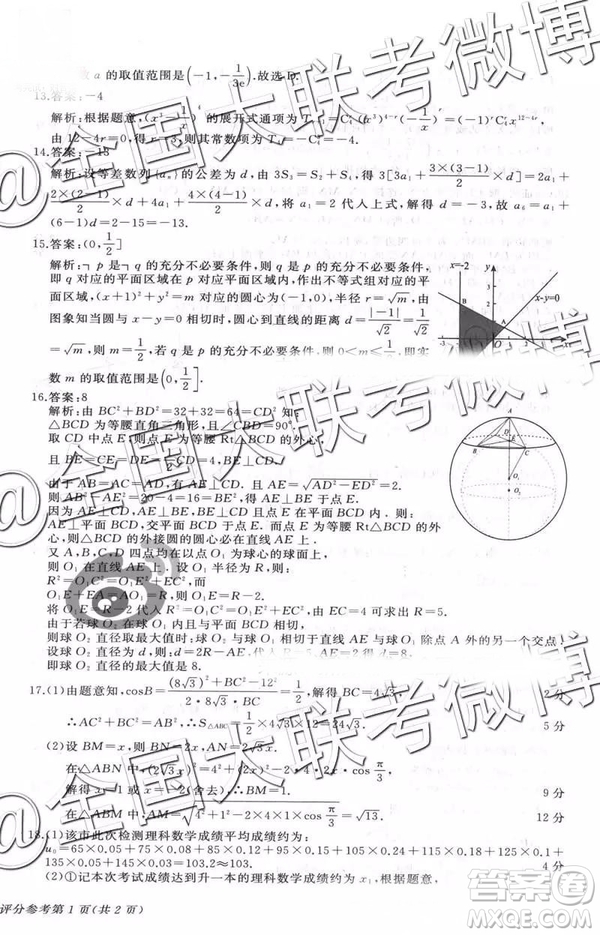 数 a 的取值范围是(-1,-1/3e).故选D.
13.答案:-4
解析:根据题意,(x³-1/x)⁴ 的展开式通项为 Tᵣ₊₁=C₄ʳ(x³)⁴⁻ʳ(-1/x)ʳ=(-1)ʳC₄ʳx¹²⁻⁴ʳ,
由 12-4r=0,得 r=3,则其常数项为 T₄=-C₄³=-4.
14.答案:-13
解析:设等差数列{aₙ}的公差为 d,由 3S₃=S₂+S₄,得 3[3a₁+3×(3-1)/2×d]=2a₁+
2×(2-1)/2×d+4a₁+4×(4-1)/2×d,将 a₁=2 代入上式,解得 d=-3,故 a₆=a₁+
(6-1)d=2-15=-13.
15.答案:(0,1/2]
解析:┐p 是┐q 的充分不必要条件,则 q 是 p 的充分不必要条件,
即 q 对应的平面区域在 p 对应平面区域内,作出不等式组对应的平
面区域,(x+1)²+y²=m 对应的圆心为(-1,0),半径 r=√m,由
图象知当圆与 x-y=0 相切时,圆心到直线的距离 d=|-1|/√2=√2/2
=√m,则 m=1/2,若 q 是 p 的充分不必要条件,则0<m≤1/2,即实
数 m 的取值范围是(0,1/2].
x=-2
y
x-y=0
16.答案:8
解析:由 BC²+BD²=32+32=64=CD² 知:
△BCD 为等腰直角三角形,且∠CBD=90°.
取 CD 中点 E,则点 E 为等腰 Rt△BCD 外心,
且 BE=CE=DE=4,BE⊥CD.
由于 AB=AC=AD,故有 AE⊥CD,且 AE=√(AD²-ED²)=2.
则 AE²+BE²=20=4+16=BE²,得 AE⊥BE 于点 E.
因为 AE⊥CD 于点 E,AE⊥BE 于点 E,
则 AE⊥平面 BCD,交平面 BCD 于点 E,而点 E 为等腰 Rt△BCD 的外心,
则△BCD 的外接圆的圆心必在直线 AE 上.
又 A、B、C、D 四点均在以 O₁ 为球心的球面上,
则 O₁ 在直线 AE 上.设 O₁ 半径为 R,则
R²=O₁C²=O₁E²+EC²,而
O₁E+AE=R,AE=2,则 O₁E=R-2.
将 O₁E=R-2 代入 R²=O₁E²+EC²,由 EC=4 可求出 R=5.
由于若球 O₂ 在球 O₁ 内且与平面 BCD 相切,
则球 O₂ 直径取最大值时:球 O₂ 与球 O₁ 相切于直线 AE 与球 O₁ 除点 A 外的另一个交点!
设球 O₂ 直径为 d,则:d=2R-AE,解得 d=8.
即球 O₂ 直径的最大值是 8.
A
D
E
B
C
O₁
O₂
17.(1)由题意知,cosB=((8√3)²+BC²-12²)/(2·8√3·BC)=1/2,解得 BC=4√3, 2 分
∴AC²+BC²=AB²,∴S△ABC=1/2×4√3×12=24√3. 5 分
(2)设 BM=x,则 BN=2x,AN=2√3x.
在△ABN 中,(2√3x)²=4²+(2x)²-2×4×2x cos π/3,
解得 x=1 或 x=-2(舍去),则 BM=1. 9 分
在△ABM 中,AM=√(4²+1²-2×4×1×cos π/3)=√13. 12 分
18.(1)该市此次检测理科数学成绩平均成绩约为:
u₀=65×0.05+75×0.08+85×0.12+95×0.15+105×0.24+115×0.18+125×0.1+
135×0.05+145×0.03=103.2≈103. 4 分
(2)①记本次考试成绩达到升一本的理科数学成绩约为
评分参考第 1 页(共 2 页)
@全国大联考微博
@全国大联考微博
@全国大联考微博